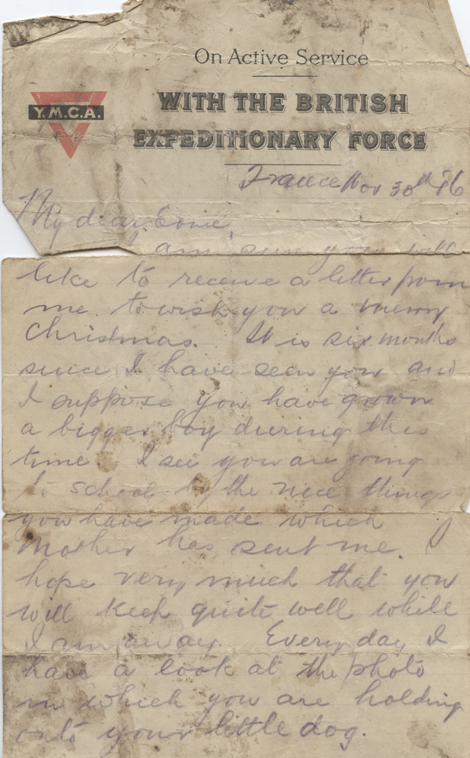 On Active Service
WITH THE BRITISH
EXPEDITIONARY FORCE
Y.M.C.A.
France Nov 30th 16
My dear
am sure you will
like to receive a letter from
me to wish you a merry
Christmas. It is six months
since I have seen you and
I suppose you have grown
a bigger boy during this
time. I see you are going
to school by the nice things
you have made which
Mother has sent me. I
hope very much that you
will keep quite well while
I am away. Every day I
have a look at the photo
in which you are holding
onto your little dog.